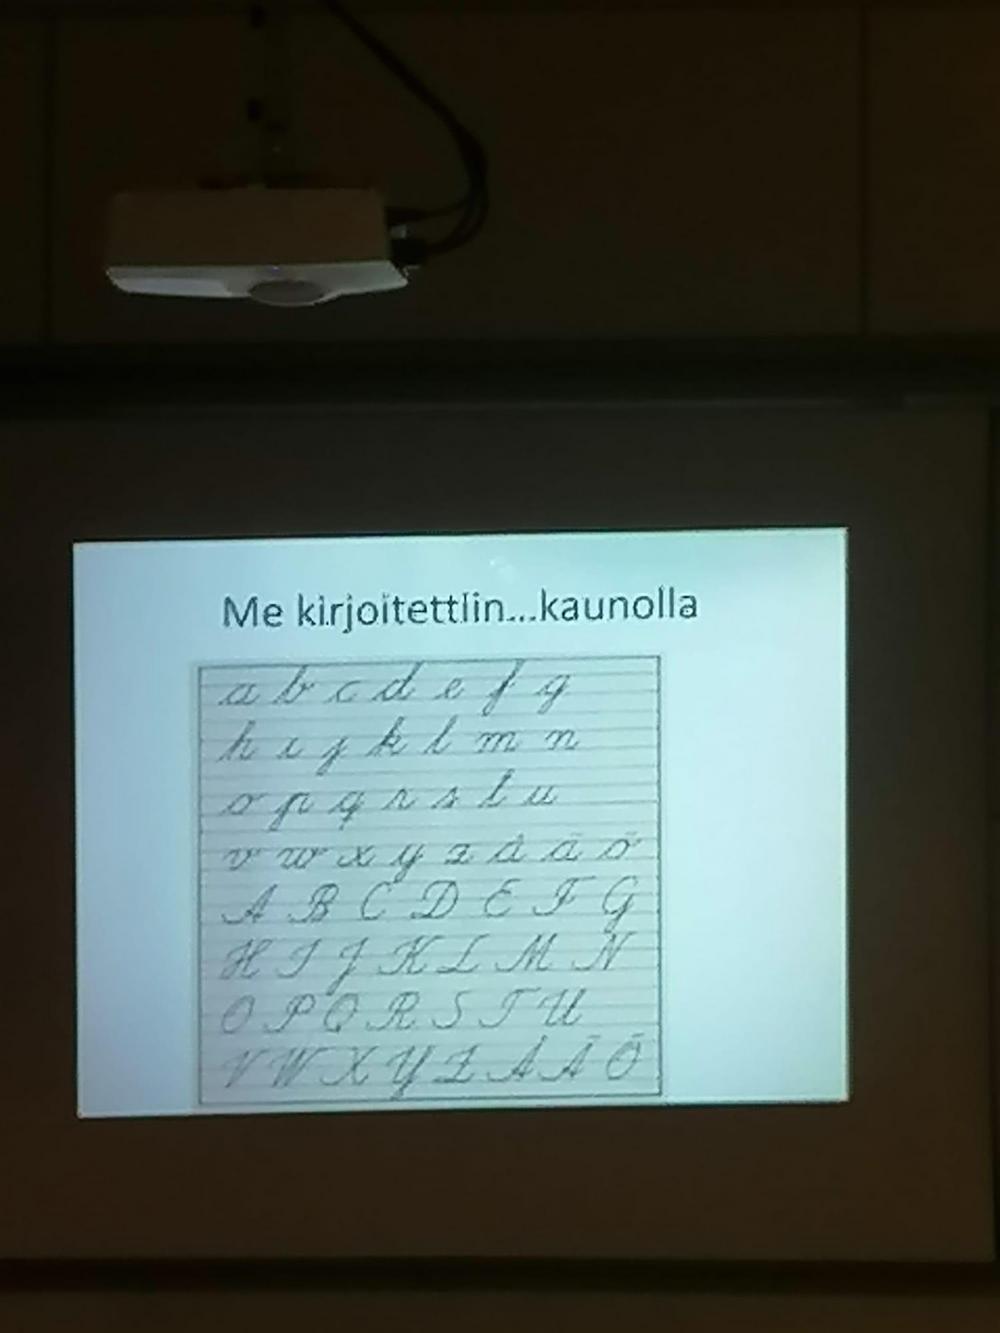 Me kirjoitettiin...kaunolla
a b c d e f g
h i j k l m n
o p q r s t u
v w x y z å ä ö
A B C D E F G
H I J K L M N
O P Q R S T U
V W X Y Z Å Ä Ö